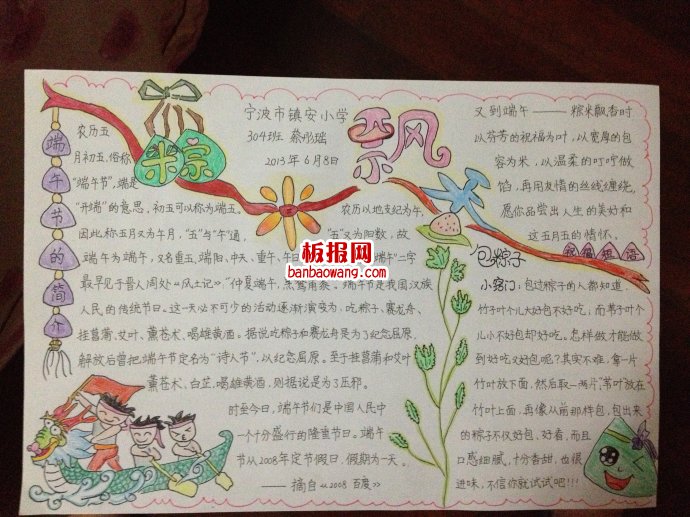 宁波市镇安小学
304班 蔡彤瑶
2013年6月8日
粽
米
飘
端午节的简介
农历五
月初五,俗称
"端午节",端是
"开端"的意思,初五可以称为端五。
农历以地支纪为午,
因此称五月又为午月,"五"与"午"通,
"五"又为阳数,故
端午为端午,又名重五、端阳、中天、重午、午日
"端午"二字
最早见于晋人周处《风土记》:"仲夏端午,烹鹜角黍。端午节是我国汉族
人民的传统节日。这一天必不可少的活动逐渐演变为,吃粽子、赛龙舟、
挂菖蒲、艾叶、薰苍术、喝雄黄酒。据说吃粽子和赛龙舟是为了纪念屈原。
解放后曾把端午节定名为"诗人节",以纪念屈原。至于挂菖蒲和艾叶
薰苍术、白芷,喝雄黄酒,则据说是为了压邪。
时至今日,端午节们是中国人民中
一个十分盛行的隆重节日。端午
节从2008年定节假日,假期为一天。
——摘自《2008 百度》
又到端午——粽米飘香时
以芬芳的祝福为叶,以宽厚的包
容为米,以温柔的叮咛做
馅,再用友情的丝线缠绕,
愿你品尝出人生的美好和
这五月五的情怀。
祝福短语
包粽子
小窍门:包过粽子的人都知道,
竹叶子个儿大好包不好吃,而苇子叶个
儿小不好包却好吃。怎样做才能做
到好吃又好包呢?其实不难,拿一片
竹叶放下面,然后取一两片苇叶放在
竹叶上面,再像从前那样包,包出来
的粽子不仅好包,好看,而且
口感细腻,十分香甜,也很
进味,不信你就试试吧!!!
板报网
banbaowang.com